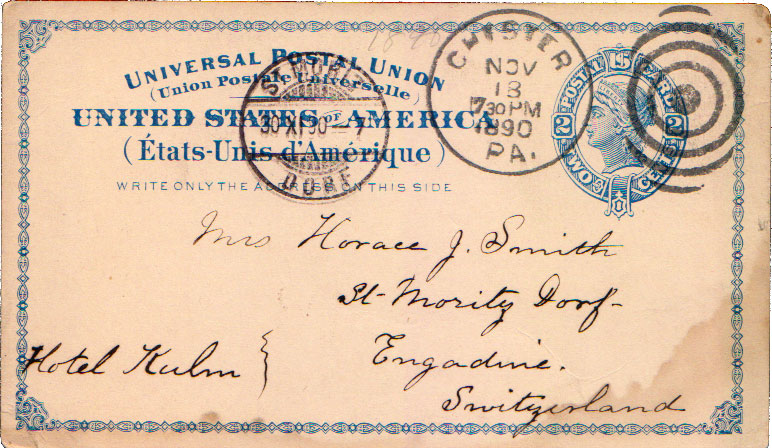 UNIVERSAL POSTAL UNION
(Union Postale Universelle)
UNITED STATES OF AMERICA
(États-Unis d'Amérique)
WRITE ONLY THE ADDRESS ON THIS SIDE
CHESTER
NOV
18
730PM
1890
PA.
POSTAL CARD
2 2
TWO CENTS
ST. MORITZ
30 XI 90 - 7
DORF
Mrs Horace J. Smith
St-Moritz Dorf-
Engadine.
Switzerland
Hotel Kulm